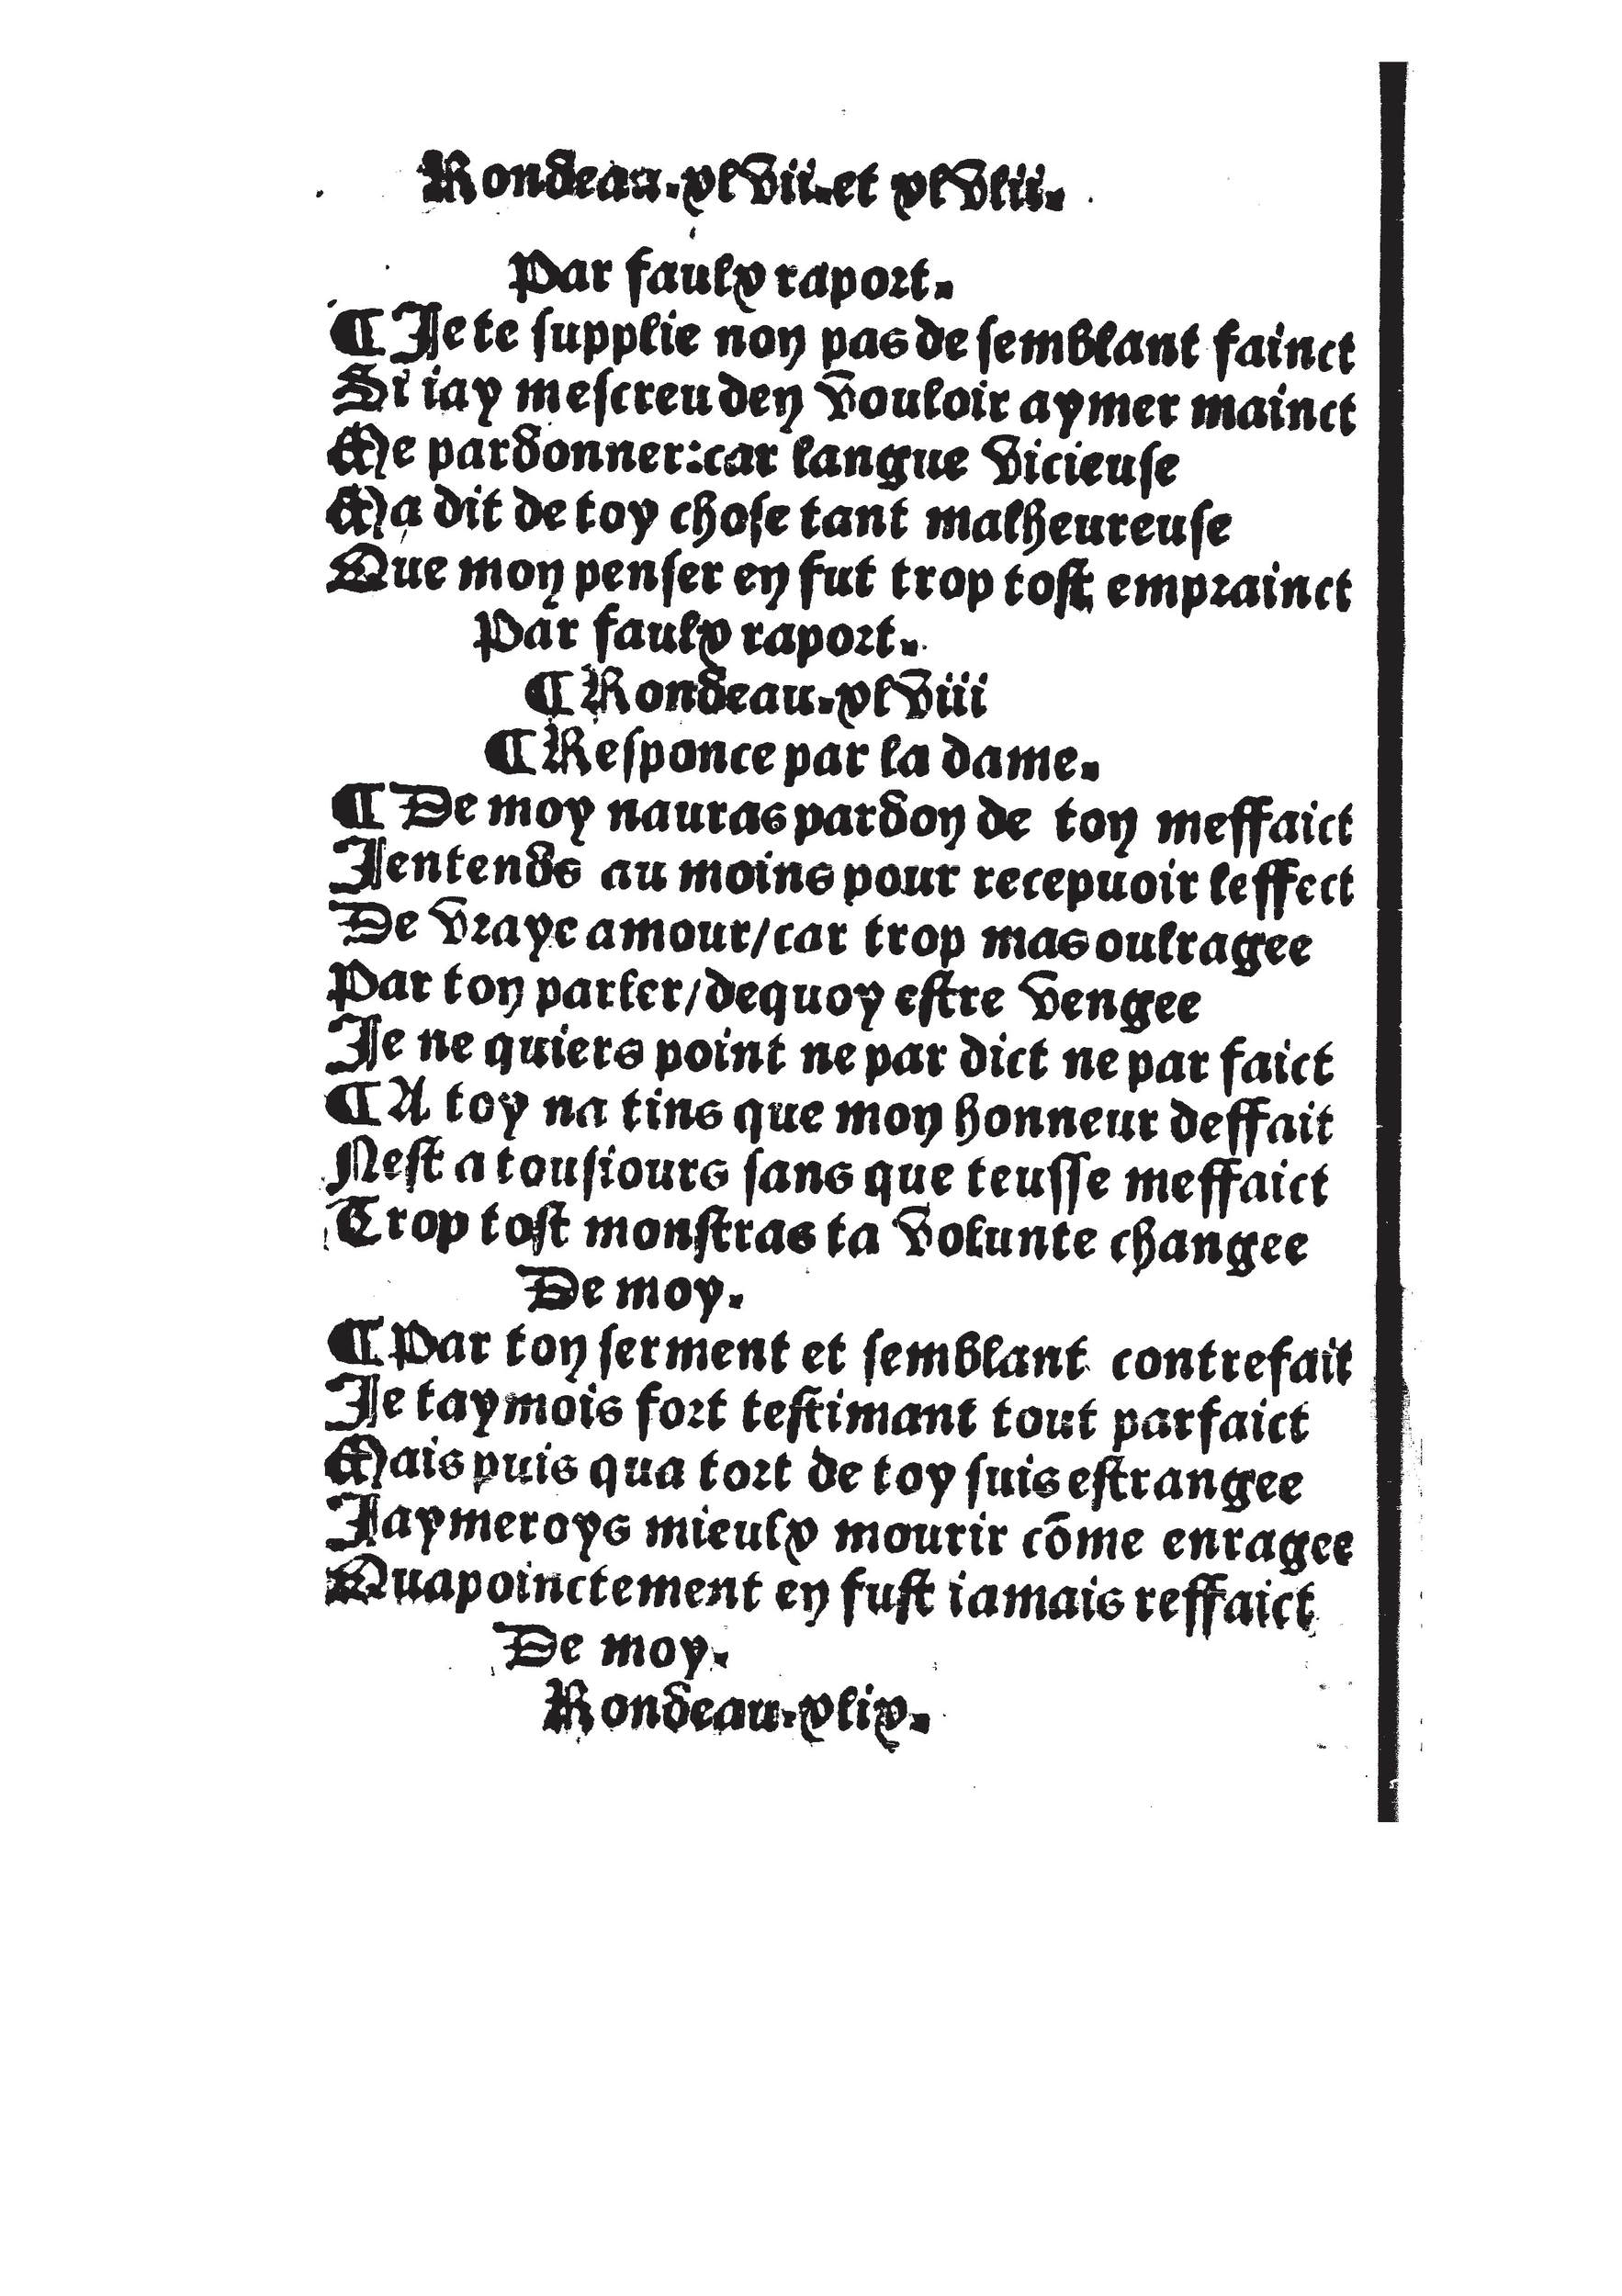 Rondeau.xlvii.et xlvlii.
Par faulx raport.
¶ Je te supplie non pas de semblant fainct
Si iay mescreu den vouloir aymer mainct
Me pardonner:car langue vicieuse
Ma dit de toy chose tant malheureuse
Que mon penser en fut trop tost emprainct
Par faulx raport.
¶ Rondeau.xlviii
¶ Responce par la dame.
¶ De moy nauras pardon de ton meffaict
Jentends au moins pour recepuoir leffect
De vraye amour/car trop mas oultragee
Par ton parler/dequoy estre vengee
Je ne quiers point ne par dict ne par faict
¶ A toy na tins que mon honneur deffait
Nest a tousiours sans que teusse meffaict
Trop tost monstras ta volunte changee
De moy.
¶ Par ton serment et semblant contrefait
Je taymois fort testimant tout parfaict
Mais puis qua tort de toy suis estrangee
Jaymeroys mieulx mourir cōme enragee
Quapoinctement en fust iamais reffaict
De moy.
Rondeau.xlix.